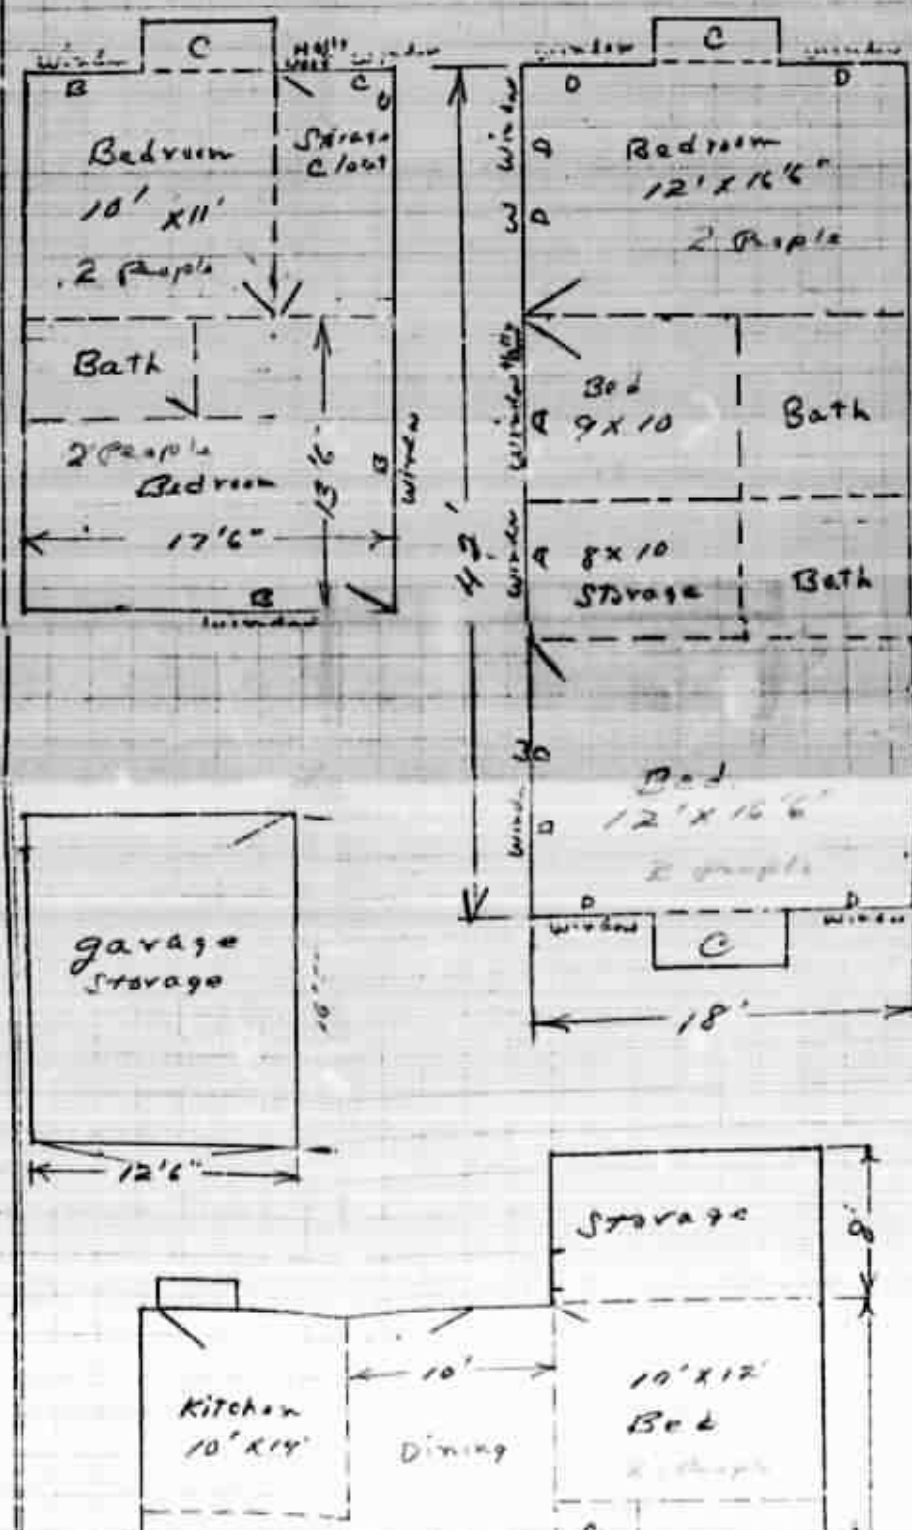 Window
C
Window
B
C
Bedroom
10' x 11'
2 People
Storage
Closet
Bath
2 People
Bedroom
13'6"
B
Window
17'6"
B
Window
42'
Window
C
Window
D
D
Window
D
W
D
Bedroom
12' x 16'6"
2 People
Window
A
Bed
9 x 10
Bath
Window
A
8 x 10
Storage
Bath
W
D
Window
D
Bed
12' x 16'6"
2 people
D
Window
C
D
Window
18'
garage
Storage
12'6"
Storage
8'
10'
Kitchen
10' x 14'
Dining
10' x 12'
Bed